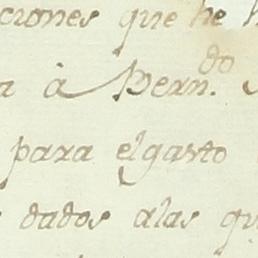 ciones que he
a à Bern.do
para el gasto
dados alas qu